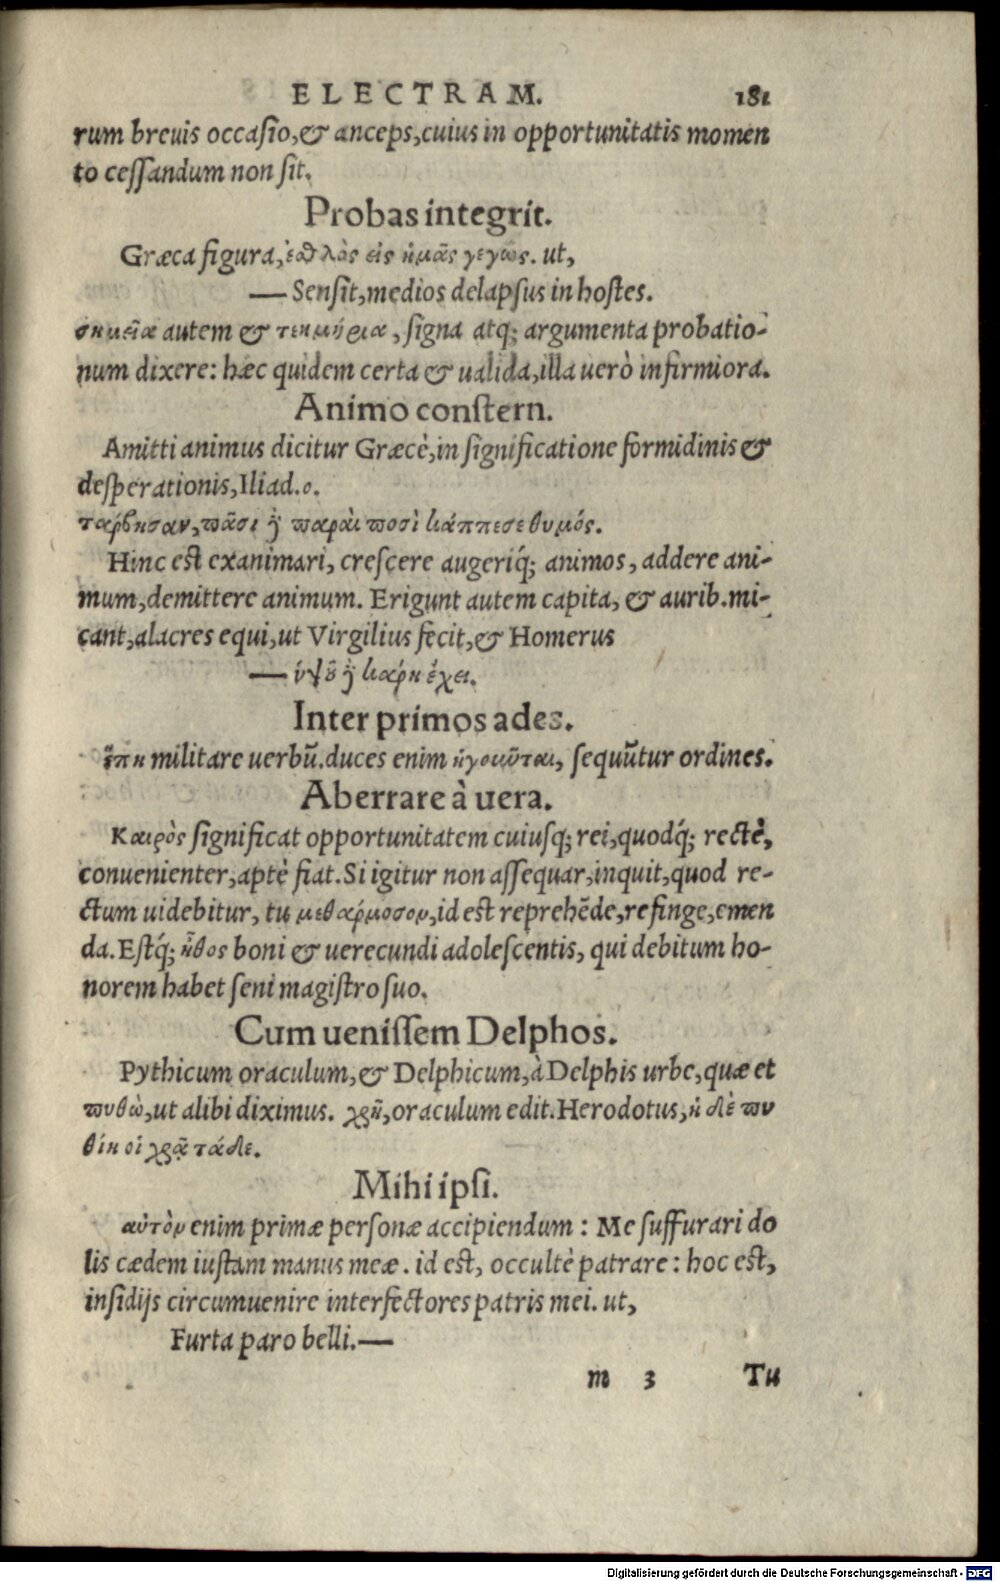 ELECTRAM. 181
rum breuis occasio,& anceps,cuius in opportunitatis momen
to cessandum non sit.
Probas integrit.
Græca figura,ἐσθλὸς εἰς ἡμᾶς γεγώς. ut,
— Sensit,medios delapsus in hostes.
σημεῖα autem & τεκμήρια, signa atq; argumenta probatio-
num dixere: hæc quidem certa & ualida,illa uerò infirmiora.
Animo constern.
Amitti animus dicitur Græcè,in significatione formidinis &
desperationis,Iliad.ο.
τάρβησαν,πᾶσι δὲ παραὶ ποσὶ κάππεσε θυμός.
Hinc est exanimari, crescere augeriq́; animos, addere ani-
mum,demittere animum. Erigunt autem capita, & aurib.mi-
cant,alacres equi,ut Virgilius fecit,& Homerus
— ὑψοῦ δὲ κάρη ἔχει.
Inter primos ades.
ἕπῃ militare uerbū.duces enim ἡγοιῶται, sequūtur ordines.
Aberrare à uera.
Καιρὸς significat opportunitatem cuiusq; rei,quodq́; rectè,
conuenienter,aptè fiat.Si igitur non assequar,inquit,quod re-
ctum uidebitur, tu μεθάρμοσον,id est reprehēde,refinge,emen
da.Estq́; ἦθος boni & uerecundi adolescentis, qui debitum ho-
norem habet seni magistro suo.
Cum uenissem Delphos.
Pythicum oraculum,& Delphicum,à Delphis urbe,quæ et
πυθὼ,ut alibi diximus. χρῆ,oraculum edit.Herodotus,ἡ δὲ πυ
θίη οἱ χρᾷ τάδε.
Mihi ipsi.
αὐτὸν enim primæ personæ accipiendum : Me suffurari do
lis cædem iustam manus meæ. id est, occultè patrare: hoc est,
insidijs circumuenire interfectores patris mei. ut,
Furta paro belli.—
m 3 Tu
Digitalisierung gefördert durch die Deutsche Forschungsgemeinschaft - DFG